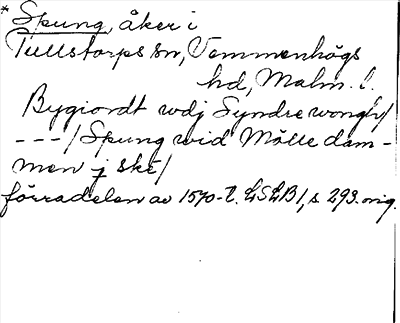 * Spung, åker i
Tullstorps sn, Vemmenhögs
hd, Malm. l.
Bygiondt wdj Syndre wongh/
---/ Spung wid Mölle dam-
men j ske/
förradelen av 1570-t. LSLB1, s 293. orig.